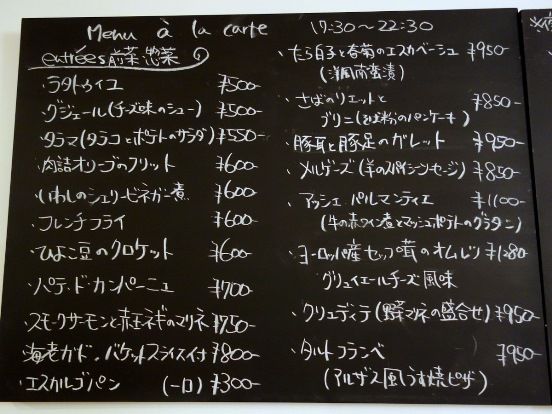 Menu à la carte 17:30～22:30
entrées 前菜 惣菜
・ラタトゥイユ ¥500-
・グジェール(チーズ味のシュー) ¥500-
・タラマ(タラコとポテトのサラダ) ¥550-
・肉詰オリーブのフリット ¥600-
・いわしのシェリービネガー煮 ¥600-
・フレンチフライ ¥600-
・ひよこ豆のクロケット ¥600-
・パテ・ド・カンパーニュ ¥700-
・スモークサーモンと赤玉ネギのマリネ ¥750-
・海老アボカド、バケットスライス付
¥800-
・エスカルゴパン (一口) ¥300-
・たら白子と春菊のエスカベーシュ ¥950-
(洋風南蛮漬)
・さばのリエットと ¥850-
ブリニ(そば粉のパンケーキ)
・豚耳と豚足のガレット ¥950-
・メルゲーズ(羊のスパイシーソーセージ) ¥850-
・アッシェ・パルマンティエ ¥1100-
(牛の赤ワイン煮とマッシュポテトのグラタン)
・ヨーロッパ産セップ茸のオムレツ ¥1280-
グリュイエールチーズ風味
・クリュディテ(野菜マリネの盛合せ) ¥950-
・タルトフランベ ¥950-
(アルザス風うす焼ピザ)